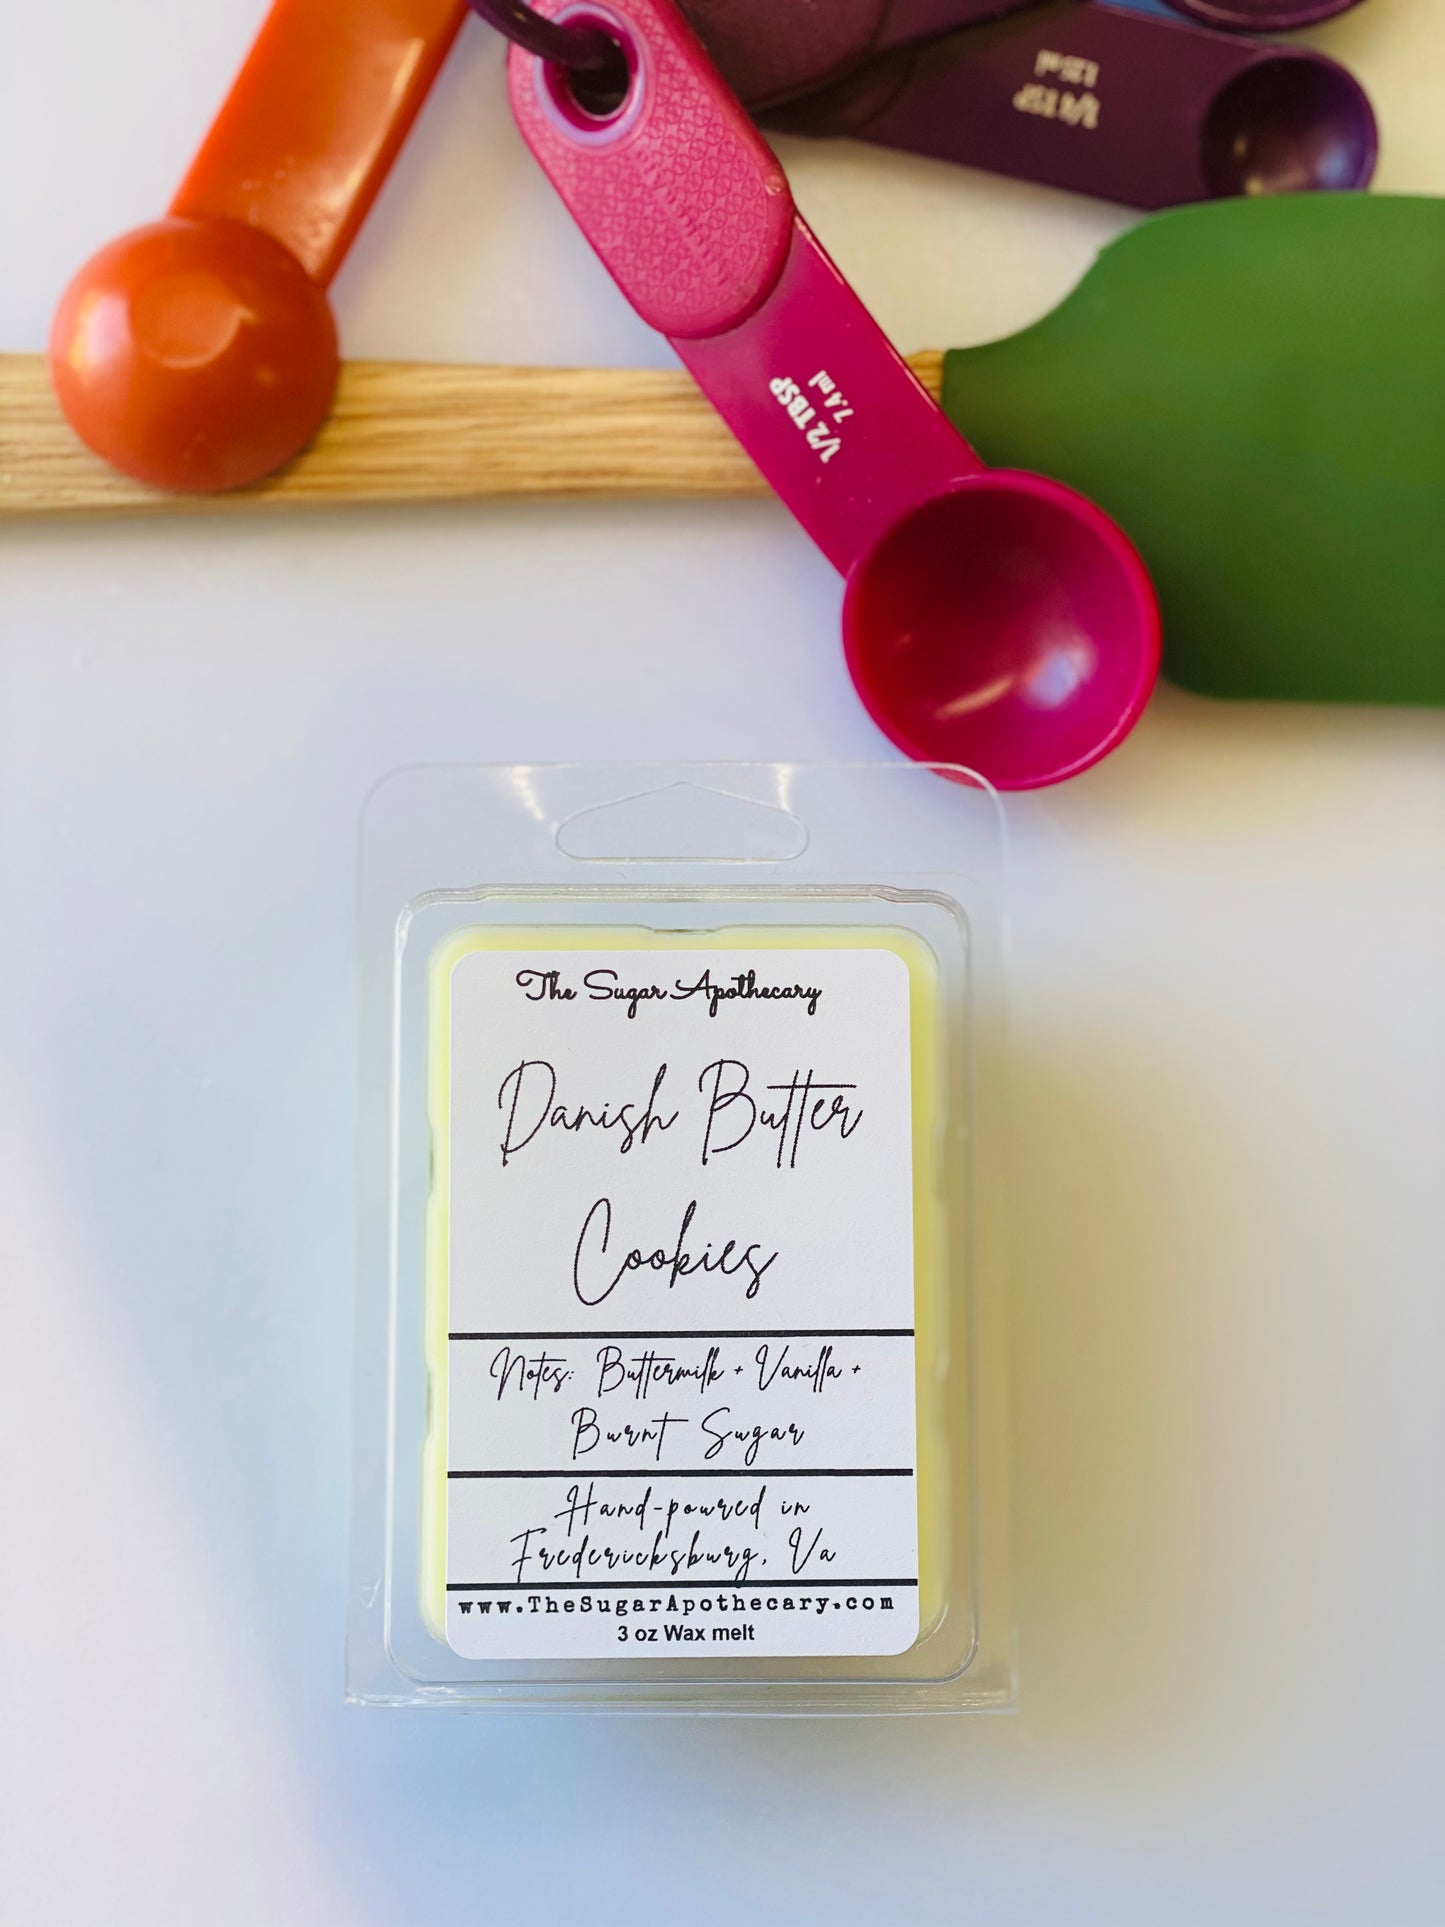 1/4 TSP
1.25 ml
1/2 TBSP
7.4 ml
The Sugar Apothecary
Danish Butter
Cookies
Notes: Buttermilk + Vanilla +
Burnt Sugar
Hand-poured in
Fredericksburg, Va
www.TheSugarApothecary.com
3 oz Wax melt